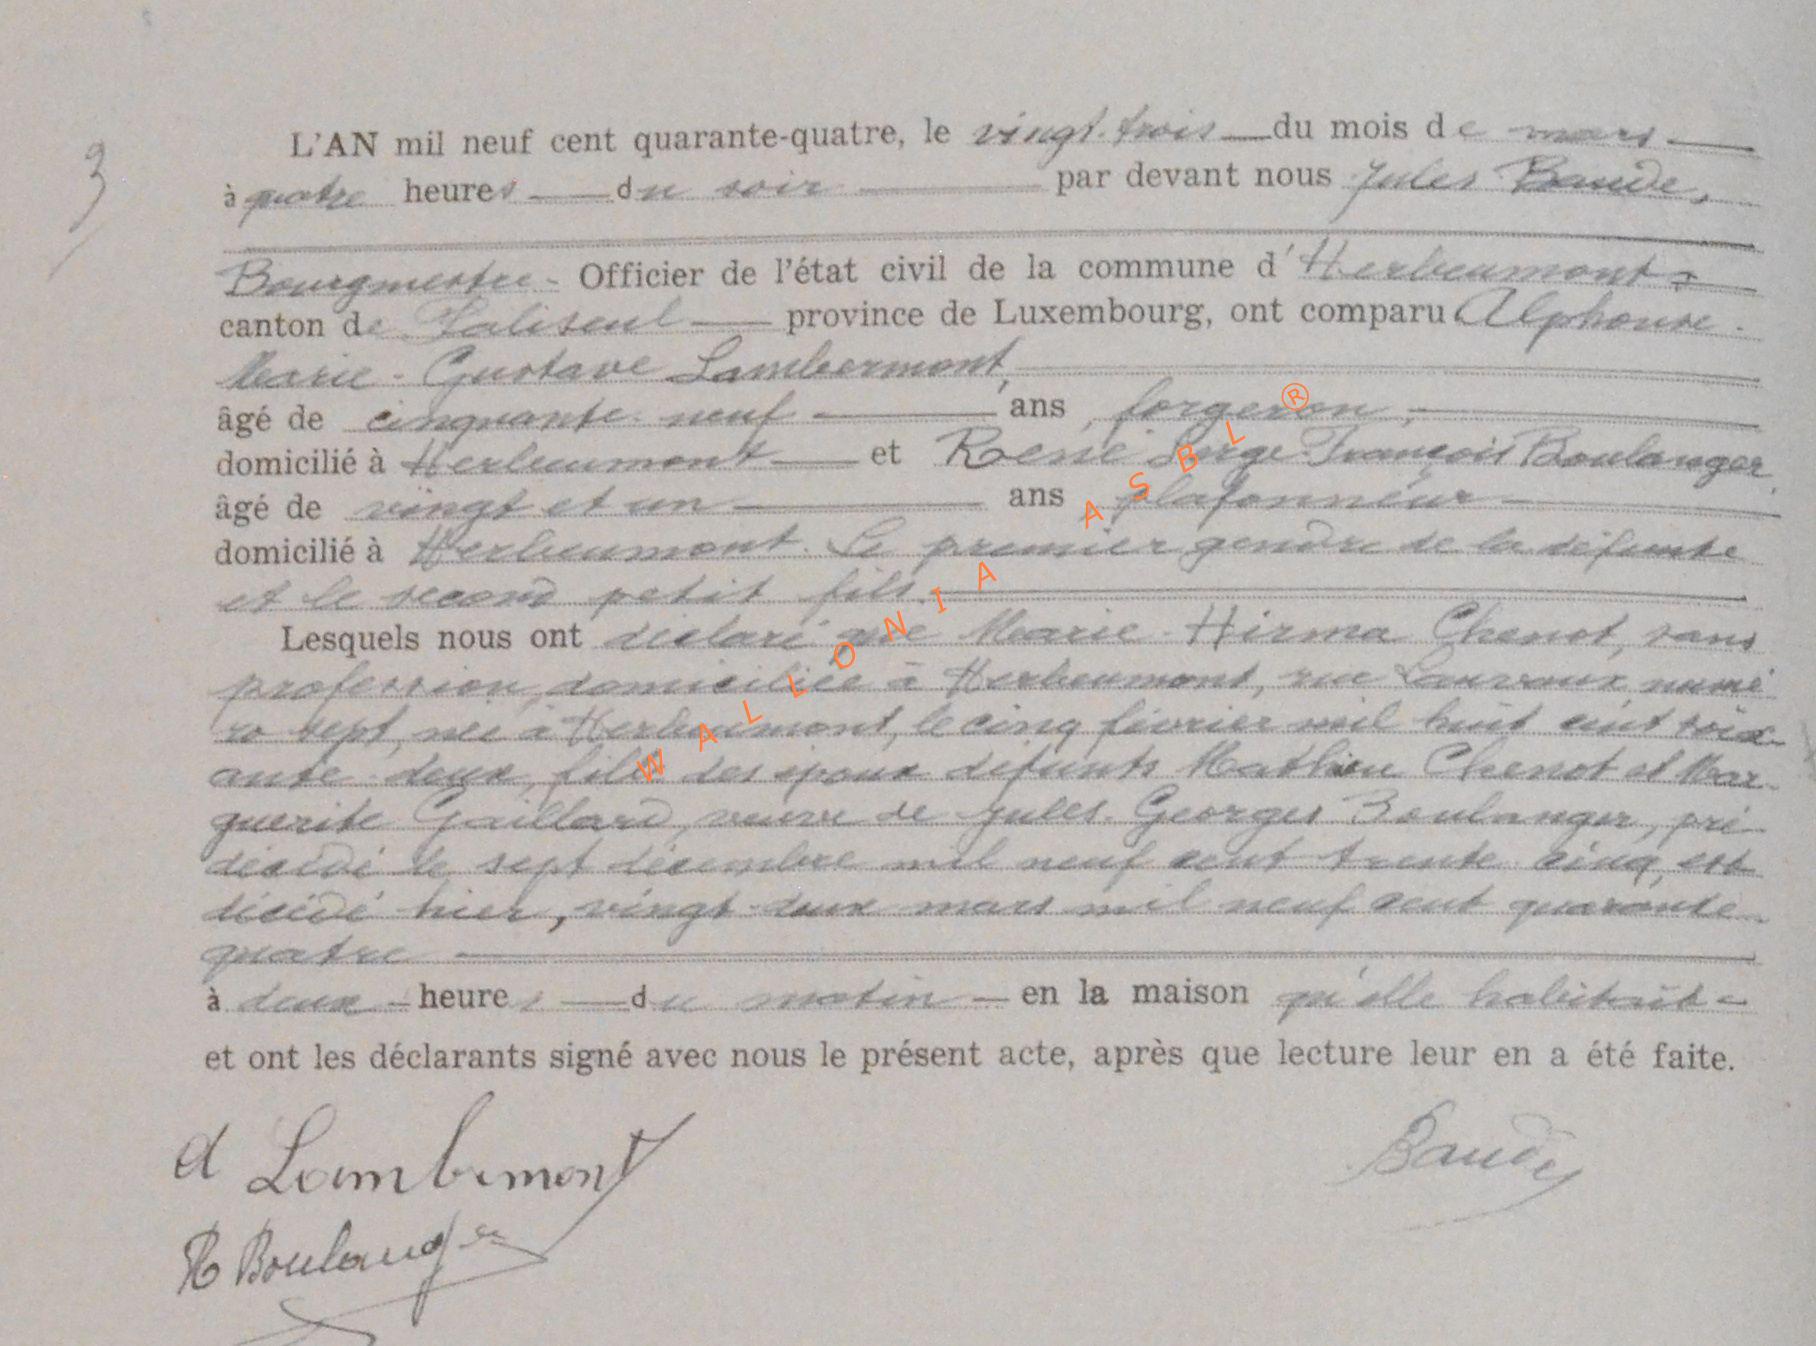 3
L'AN mil neuf cent quarante-quatre, le vingt-trois du mois de mars
à quatre heures du soir par devant nous Jules Baude,
Bourgmestre - Officier de l'état civil de la commune d'Herbeumont,
canton de Paliseul province de Luxembourg, ont comparu Alphonse-
Marie-Gustave Lambermont,
âgé de cinquante-neuf ans, forgeron,
domicilié à Herbeumont et René Serge François Boulanger
âgé de vingt et un ans, plafonneur
domicilié à Herbeumont. Le premier gendre de la défunte
et le second petit fils.
Lesquels nous ont déclaré que Marie-Hirma Chenot, sans
profession, domiciliée à Herbeumont, rue Lauvaux numé
ro sept, née à Herbeumont, le cinq février mil huit cent soix-
ante-deux, fille des époux défunts Mathieu Chenot et Mar-
guerite Gaillard, veuve de Jules-Georges Boulanger, pré-
décédé le sept décembre mil neuf cent trente cinq, est
décédé hier, vingt-deux mars mil neuf cent quarante-
quatre
à deux heures du matin en la maison qu'elle habitait
et ont les déclarants signé avec nous le présent acte, après que lecture leur en a été faite.
A Lambermont Baude
R Boulanger
WALLONIA ASBL ®